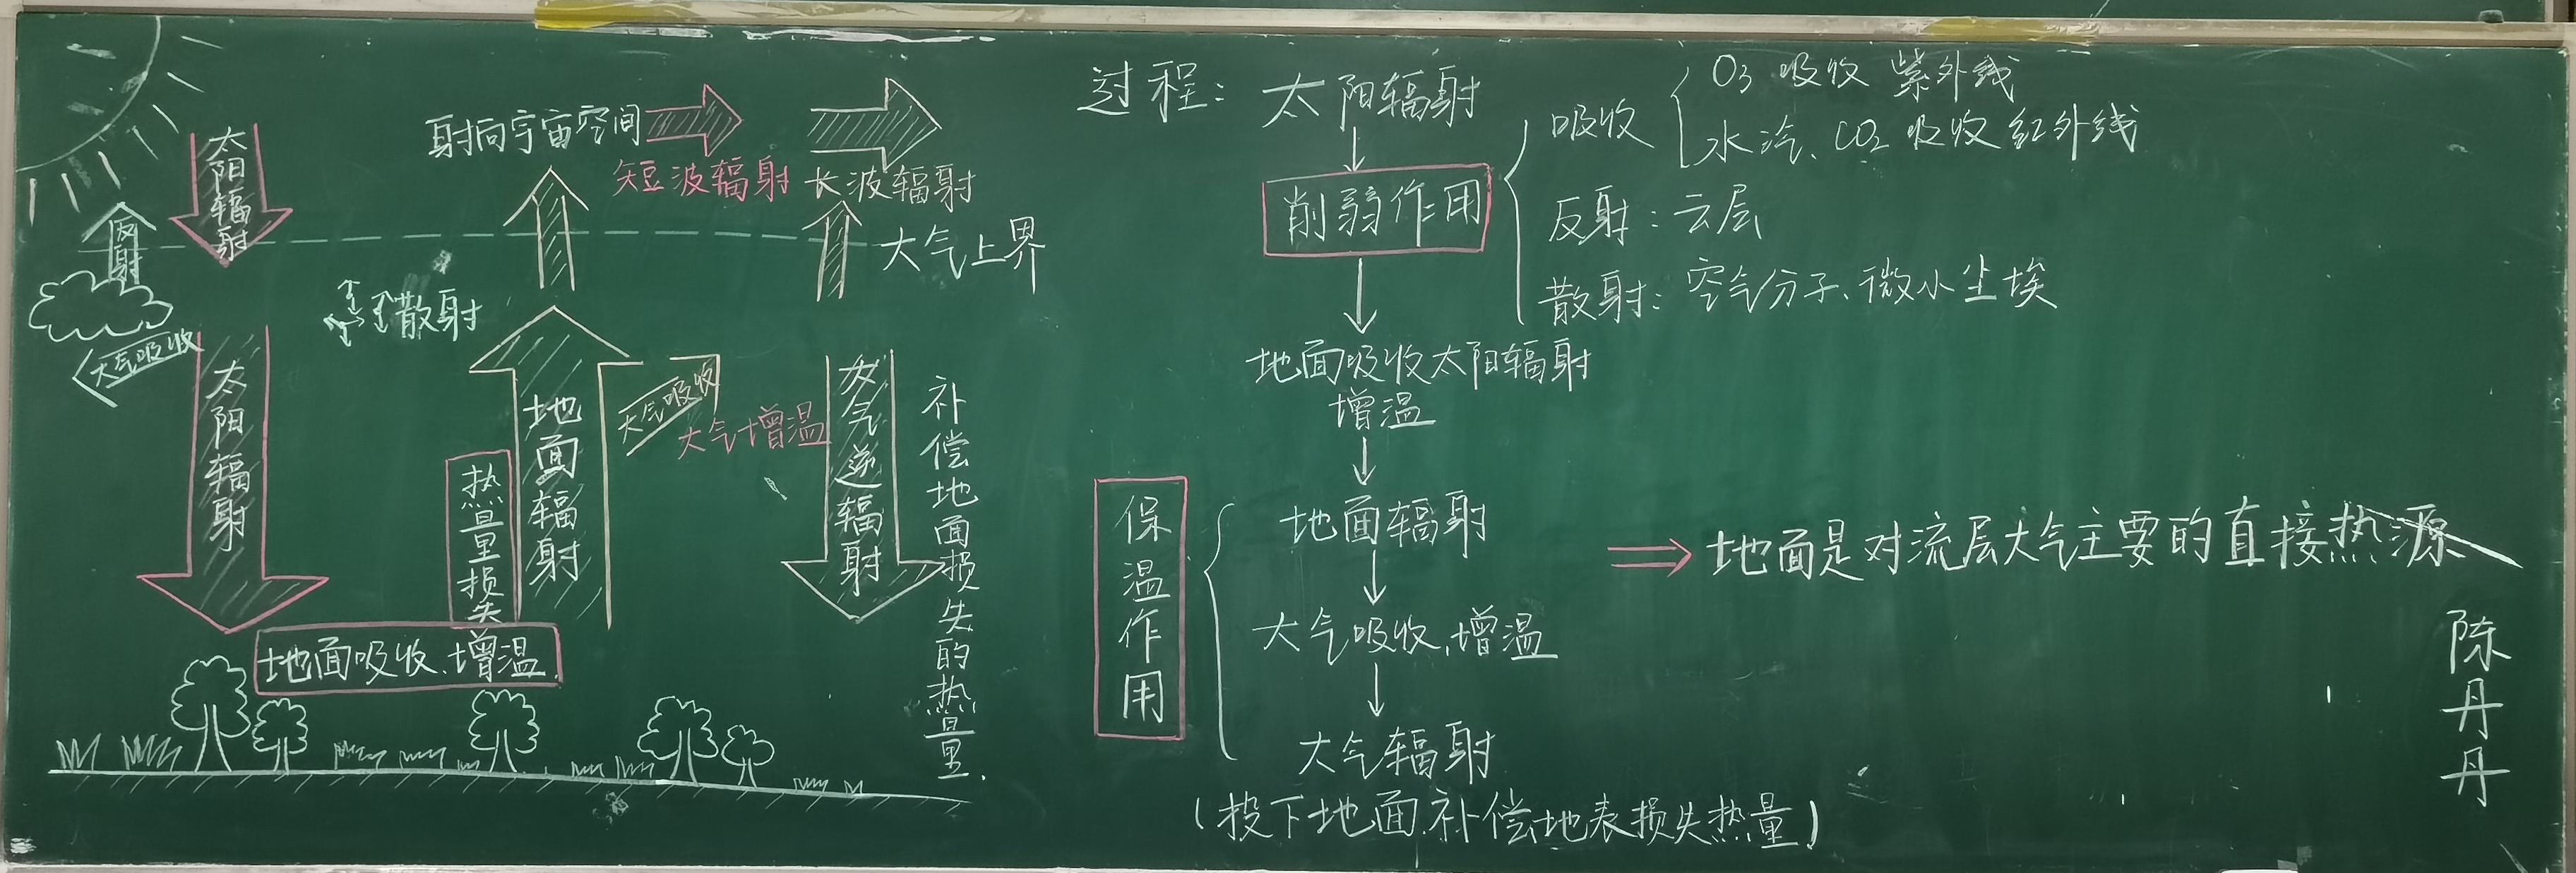 太阳辐射
反射
大气吸收
太阳辐射
散射
射向宇宙空间
短波辐射
长波辐射
大气上界
地面辐射
热量损失
地面吸收、增温
大气吸收
大气增温
大气逆辐射
补偿地面损失的热量.
过程:
太阳辐射
削弱作用
吸收
O₃ 吸收 紫外线
水汽、CO₂ 吸收红外线
反射:云层
散射:空气分子、微小尘埃
地面吸收太阳辐射
增温
保温作用
地面辐射
大气吸收,增温
大气辐射
(投下地面.补偿地表损失热量)
地面是对流层大气主要的直接热源
陈丹丹